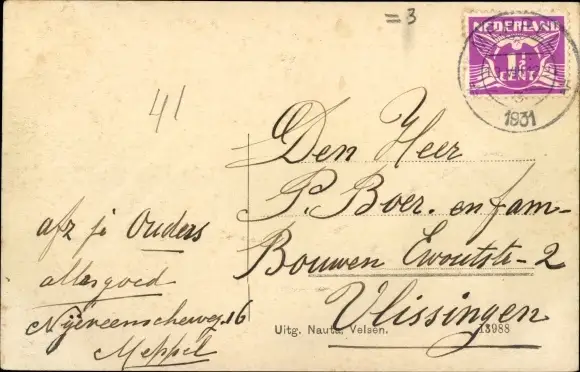 = 3
NEDERLAND
1½
CENT
1931
41
Den Heer
P. Boer. en fam-
Bouwen Ewoutstr- 2
Vlissingen
afz je Ouders
alles goed
Nijeveenscheweg. 16
Meppel
Uitg. Nauta, Velsen. 13988